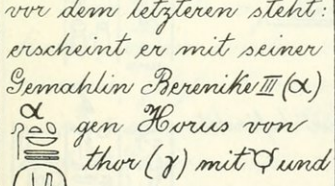 vor dem letzteren steht:
erscheint er mit seiner
Gemahlin Berenike III (α)
α
gen Horus von
thor (γ) mit und